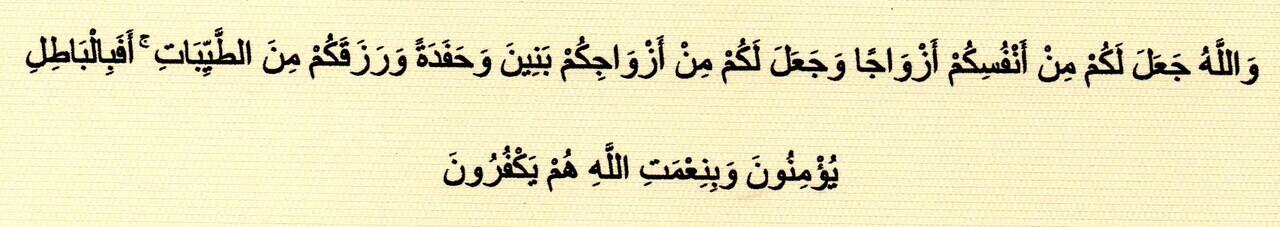 وَاللَّهُ جَعَلَ لَكُمْ مِنْ أَنْفُسِكُمْ أَزْوَاجًا وَجَعَلَ لَكُمْ مِنْ أَزْوَاجِكُمْ بَنِينَ وَحَفَدَةً وَرَزَقَكُمْ مِنَ الطَّيِّبَاتِ ۚ أَفَبِالْبَاطِلِ
يُؤْمِنُونَ وَبِنِعْمَتِ اللَّهِ هُمْ يَكْفُرُونَ